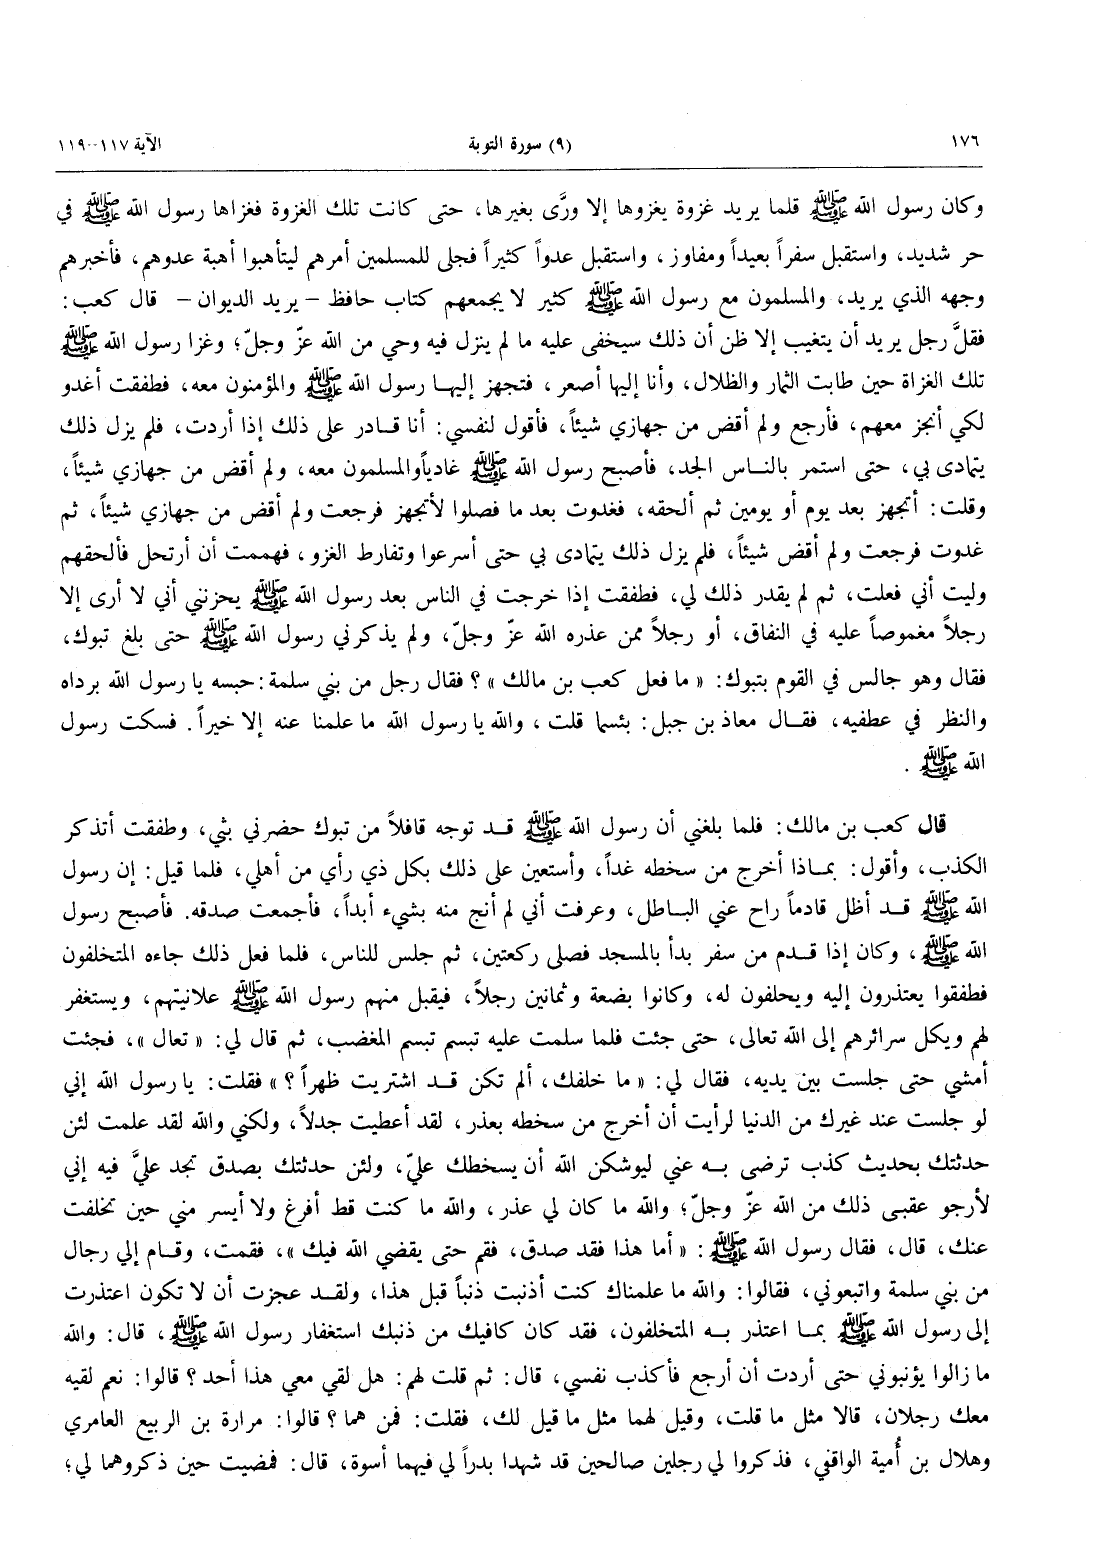 ١٧٦ (٩) سورة التوبة الآية ١١٧-١١٩
وكان رسول الله ﷺ قلما يريد غزوة يغزوها إلا ورَّى بغيرها، حتى كانت تلك الغزوة فغزاها رسول الله ﷺ في
حر شديد، واستقبل سفراً بعيداً ومفاوز، واستقبل عدواً كثيراً فجلى للمسلمين أمرهم ليتأهبوا أهبة عدوهم، فأخبرهم
وجهه الذي يريد، والمسلمون مع رسول الله ﷺ كثير لا يجمعهم كتاب حافظ – يريد الديوان – قال كعب:
فقلَّ رجل يريد أن يتغيب إلا ظن أن ذلك سيخفى عليه ما لم ينزل فيه وحي من الله عزّ وجلّ؛ وغزا رسول الله ﷺ
تلك الغزاة حين طابت الثمار والظلال، وأنا إليها أصعر، فتجهز إليها رسول الله ﷺ والمؤمنون معه، فطفقت أغدو
لكي أنجز معهم، فأرجع ولم أقض من جهازي شيئاً، فأقول لنفسي: أنا قادر على ذلك إذا أردت، فلم يزل ذلك
يتمادى بي، حتى استمر بالناس الجد، فأصبح رسول الله ﷺ غادياً والمسلمون معه، ولم أقض من جهازي شيئاً،
وقلت: أتجهز بعد يوم أو يومين ثم ألحقه، فغدوت بعد ما فصلوا لأتجهز فرجعت ولم أقض من جهازي شيئاً، ثم
غدوت فرجعت ولم أقض شيئاً، فلم يزل ذلك يتمادى بي حتى أسرعوا وتفارط الغزو، فهممت أن أرتحل فألحقهم
وليت أني فعلت، ثم لم يقدر ذلك لي، فطفقت إذا خرجت في الناس بعد رسول الله ﷺ يحزنني أني لا أرى إلا
رجلاً مغموصاً عليه في النفاق، أو رجلاً ممن عذره الله عزّ وجلّ، ولم يذكرني رسول الله ﷺ حتى بلغ تبوك،
فقال وهو جالس في القوم بتبوك: « ما فعل كعب بن مالك »؟ فقال رجل من بني سلمة: حبسه يا رسول الله برداه
والنظر في عطفيه، فقال معاذ بن جبل: بئسما قلت، والله يا رسول الله ما علمنا عنه إلا خيراً. فسكت رسول
الله ﷺ.
قال كعب بن مالك: فلما بلغني أن رسول الله ﷺ قد توجه قافلاً من تبوك حضرني بثي، وطفقت أتذكر
الكذب، وأقول: بماذا أخرج من سخطه غداً، وأستعين على ذلك بكل ذي رأي من أهلي، فلما قيل: إن رسول
الله ﷺ قد أظل قادماً راح عني الباطل، وعرفت أني لم أنج منه بشيء أبداً، فأجمعت صدقه. فأصبح رسول
الله ﷺ، وكان إذا قدم من سفر بدأ بالمسجد فصلى ركعتين، ثم جلس للناس، فلما فعل ذلك جاءه المتخلفون
فطفقوا يعتذرون إليه ويحلفون له، وكانوا بضعة وثمانين رجلاً، فيقبل منهم رسول الله ﷺ علانيتهم، ويستغفر
لهم ويكل سرائرهم إلى الله تعالى، حتى جئت فلما سلمت عليه تبسم تبسم المغضب، ثم قال لي: « تعال »، فجئت
أمشي حتى جلست بين يديه، فقال لي: « ما خلفك، ألم تكن قد اشتريت ظهراً؟ » فقلت: يا رسول الله إني
لو جلست عند غيرك من الدنيا لرأيت أن أخرج من سخطه بعذر، لقد أعطيت جدلاً، ولكني والله لقد علمت لئن
حدثتك بحديث كذب ترضى به عني ليوشكن الله أن يسخطك عليّ، ولئن حدثتك بصدق تجد عليَّ فيه إني
لأرجو عقبى ذلك من الله عزّ وجلّ؛ والله ما كان لي عذر، والله ما كنت قط أفرغ ولا أيسر مني حين تخلفت
عنك، قال، فقال رسول الله ﷺ: « أما هذا فقد صدق، فقم حتى يقضي الله فيك »، فقمت، وقام إلي رجال
من بني سلمة واتبعوني، فقالوا: والله ما علمناك كنت أذنبت ذنباً قبل هذا، ولقد عجزت أن لا تكون اعتذرت
إلى رسول الله ﷺ بما اعتذر به المتخلفون، فقد كان كافيك من ذنبك استغفار رسول الله ﷺ، قال: والله
ما زالوا يؤنبوني حتى أردت أن أرجع فأكذب نفسي، قال: ثم قلت لهم: هل لقي معي هذا أحد؟ قالوا: نعم لقيه
معك رجلان، قالا مثل ما قلت، وقيل لهما مثل ما قيل لك، فقلت: فمن هما؟ قالوا: مرارة بن الربيع العامري
وهلال بن أُمية الواقفي، فذكروا لي رجلين صالحين قد شهدا بدراً لي فيهما أسوة، قال: فمضيت حين ذكروهما لي؛